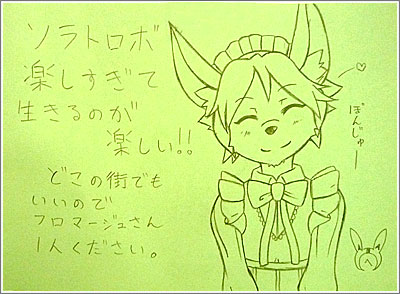 ソラトロボ
楽しすぎて
生きるのが
楽しい!!
どこの街でも
いいので
フロマージュさん
1人ください。
ぼんじゅー